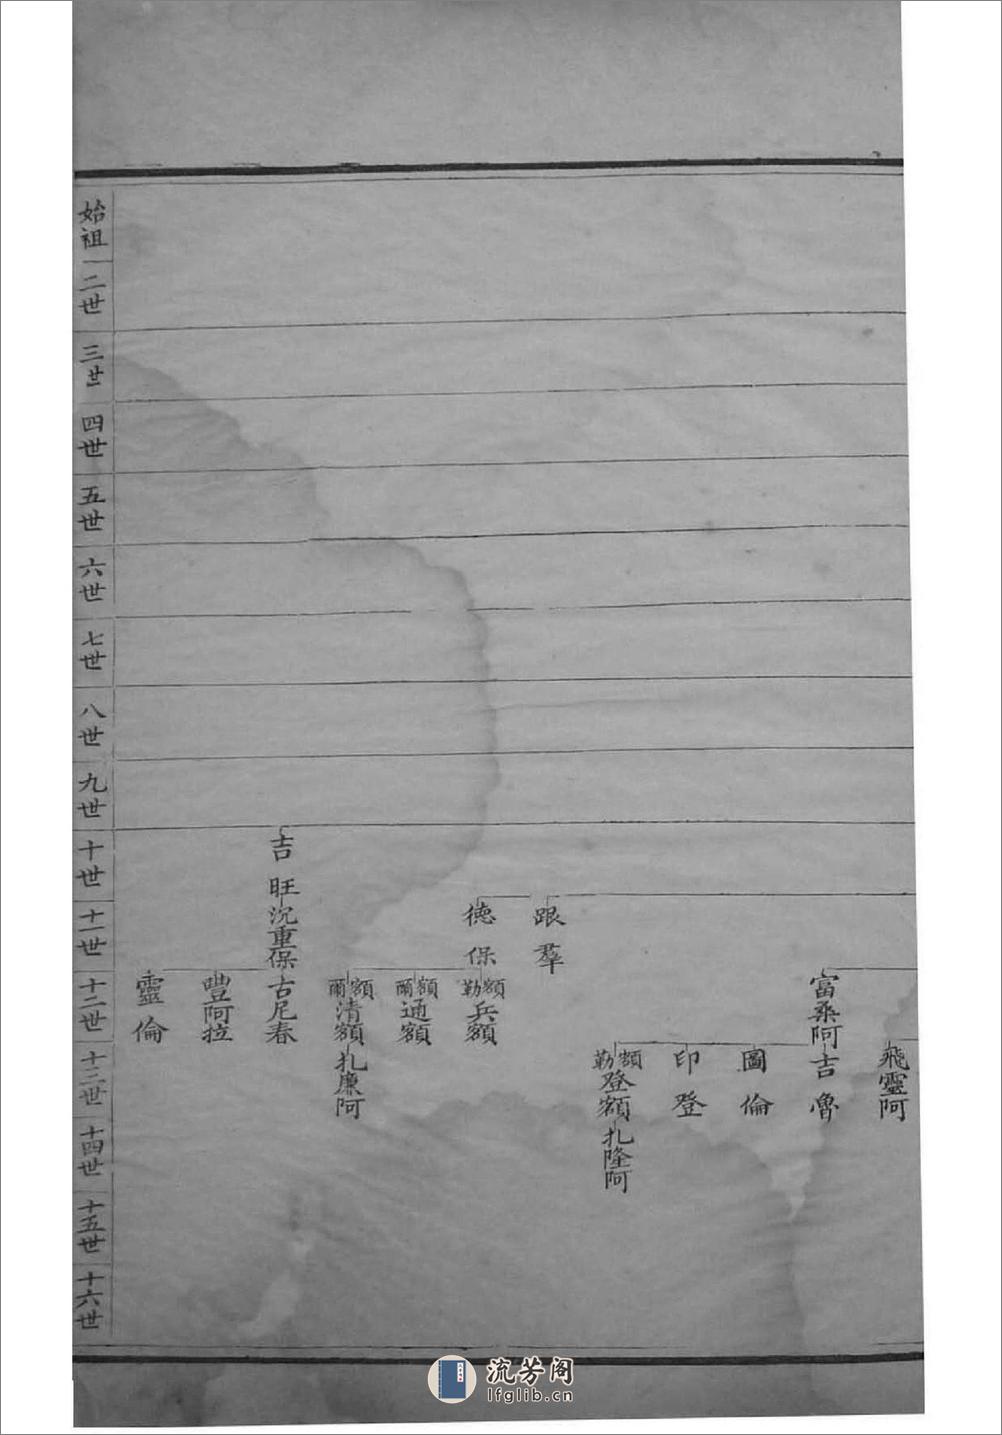 飛靈阿
富桑阿
吉魯
圖倫
印登
額勒登額
扎隆阿
跟羣
德保
額勒兵額
額爾通額
額爾清額
扎廉阿
吉旺
沉重保
古尼春
豐阿拉
靈倫
始祖
二世
三世
四世
五世
六世
七世
八世
九世
十世
十一世
十二世
十三世
十四世
十五世
十六世
流芳阁
lfglib.cn